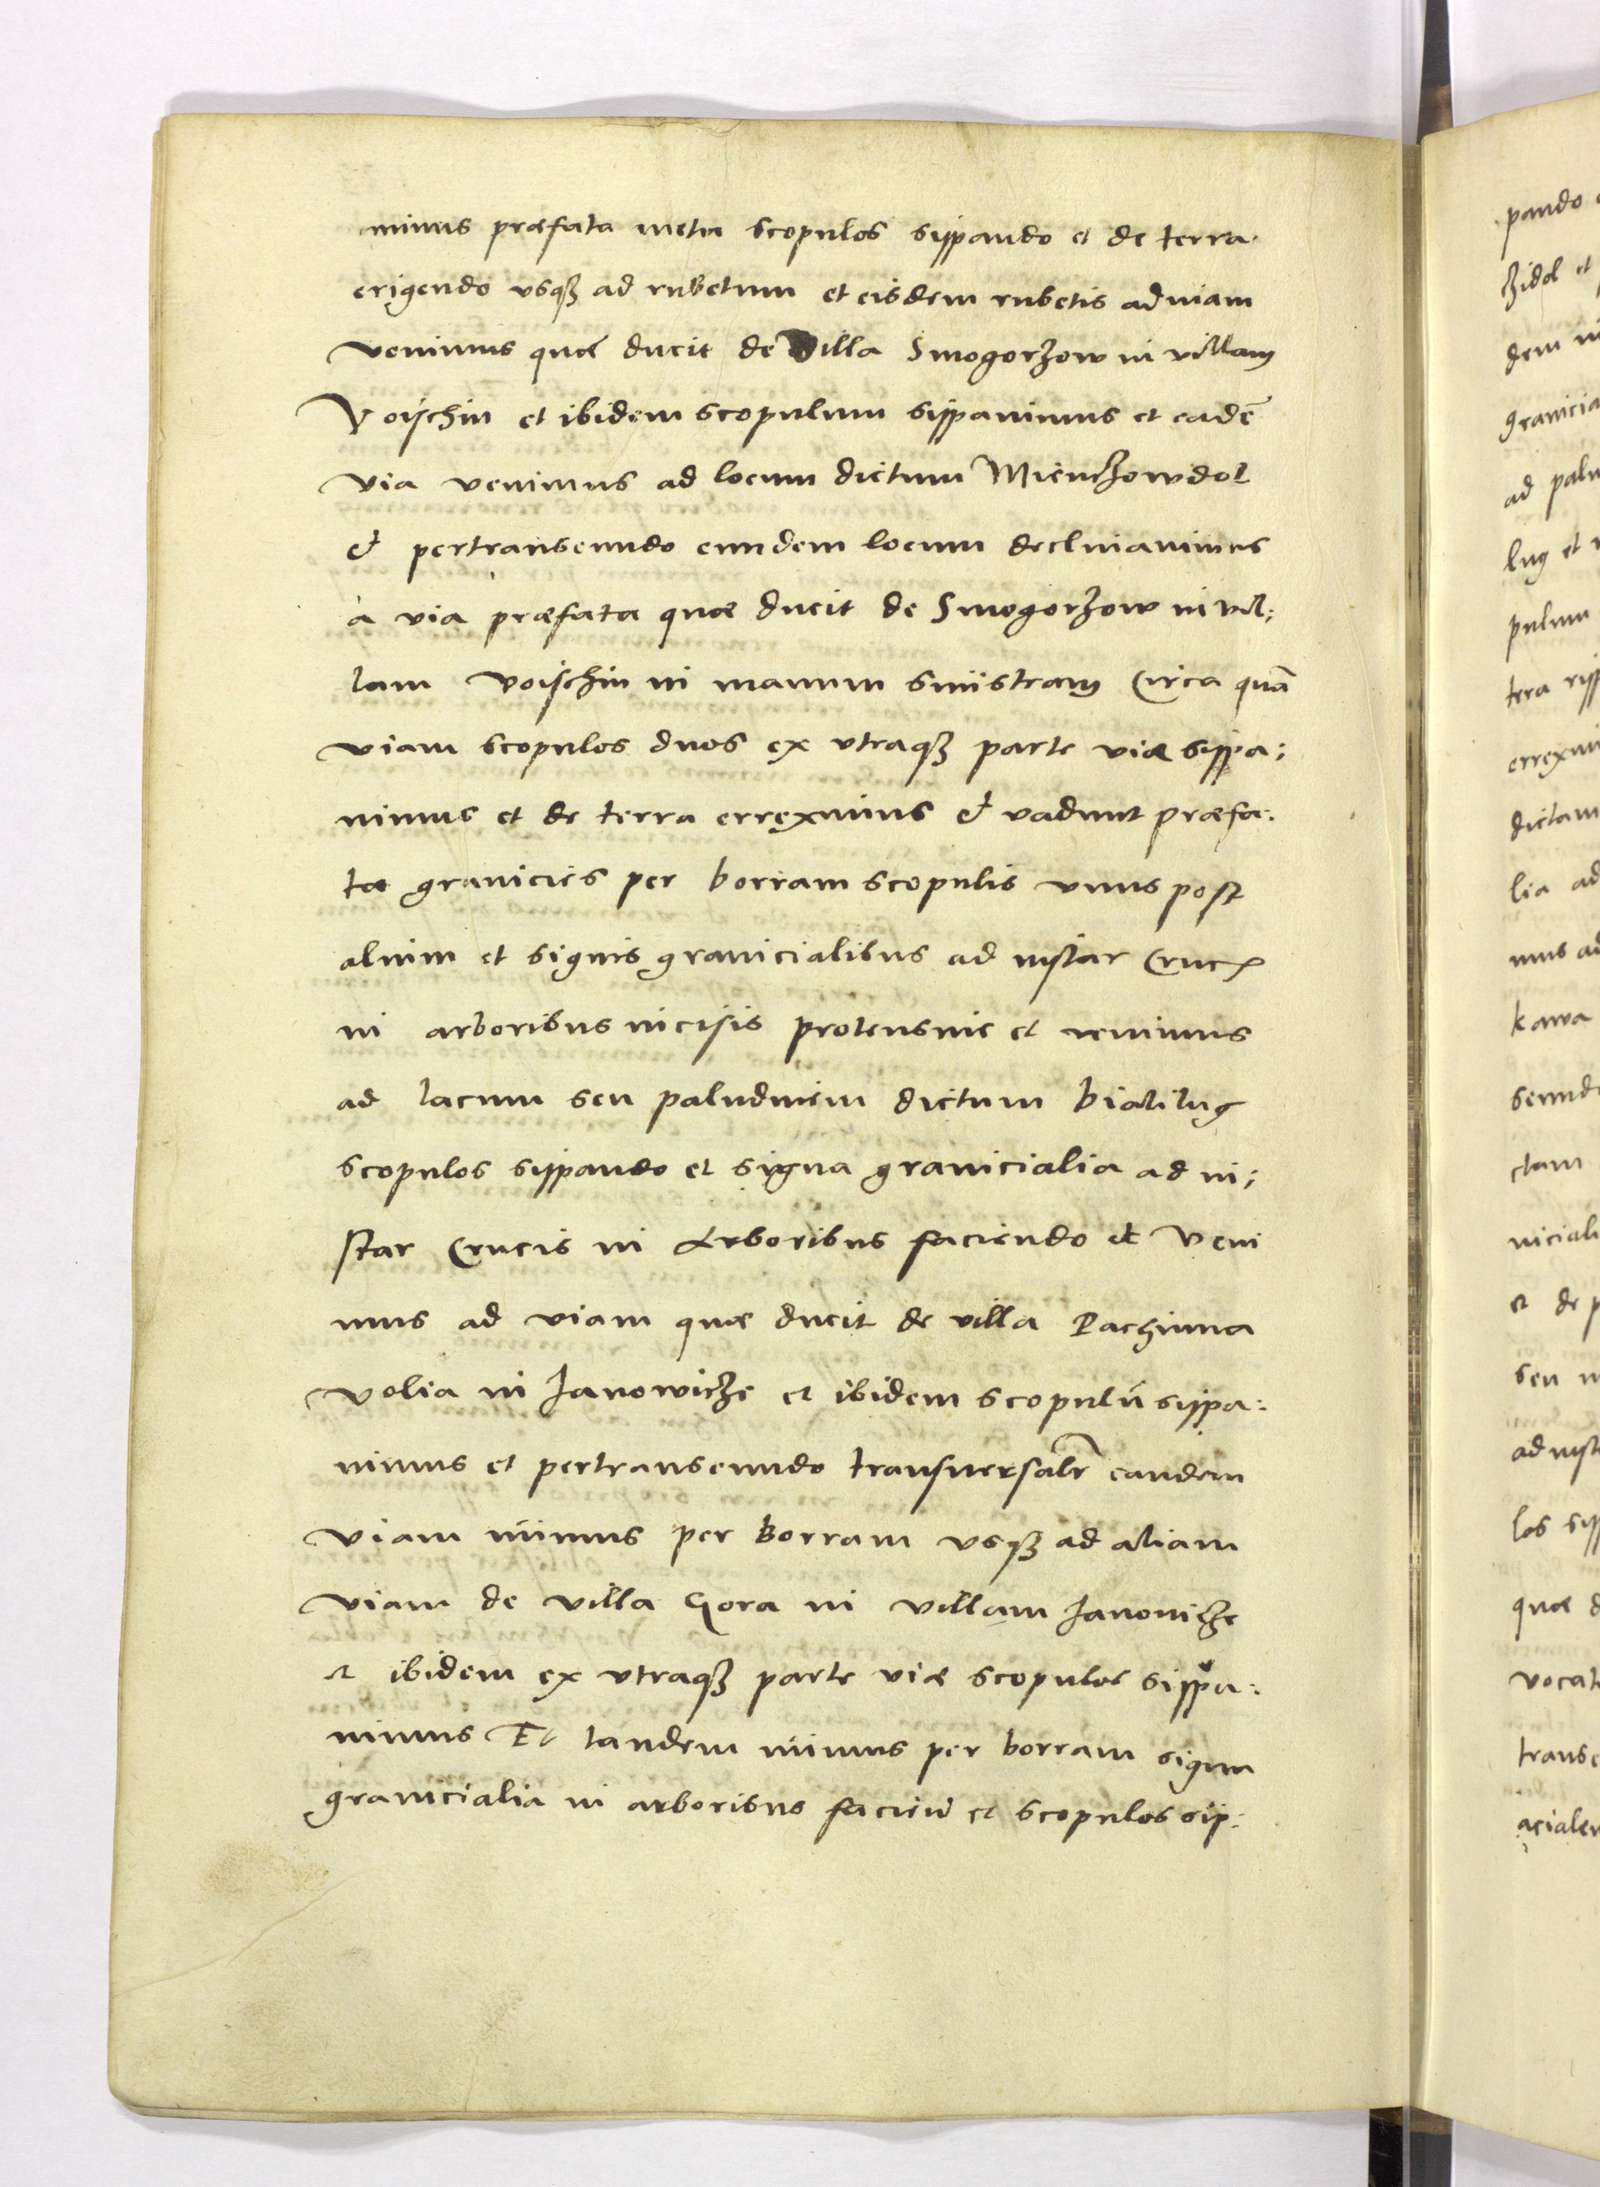 nimus præfata meta scopulos sippando et de terra
erigendo usqꝫ ad rubetum et eisdem rubetis ad viam
venimus quæ ducit de Villa Smogorzow in villam
Voischin et ibidem scopulum sippavimus et eadē
via venimus ad locum dictum Mienczowdol
et pertranseundo eundem locum declinavimus
a via præfata quæ ducit de Smogorzow in vil:
lam Voischin in manum sinistram Circa quā
viam scopulos duos ex utraqꝫ parte viæ sippa:
vimus et de terra erreximus et vadunt præfa:
tæ granicies per borram scopulis unus post
alium et signis granicialibus ad instar Crucꝭ
in arboribus incisis protensive et venimus
ad lacum seu paludinem dictum bialilug
scopulos sippando et signa granicialia ad in:
star Crucis in Arboribus faciendo et Veni
mus ad viam quæ ducit de villa Pachinna
volia in Janowicze et ibidem scopulū sippa:
vimus et pertranseundo transversalr̄ eandem
viam ivimus per Borram usqꝫ ad aliam
viam de villa Gora in villam Janovicze
et ibidem ex utraqꝫ parte viæ scopulos sippa:
vimus Et tandem ivimus per borram signa
granicialia in arboribus faciēd et scopulos sip:
pando
zidol et
dem
granicia
ad palu
lug et
pulum
tera
dictam
lia ad
mus ad
kawa
ctam
niciali
et de p
seu
ad inst
quæ d
vocat